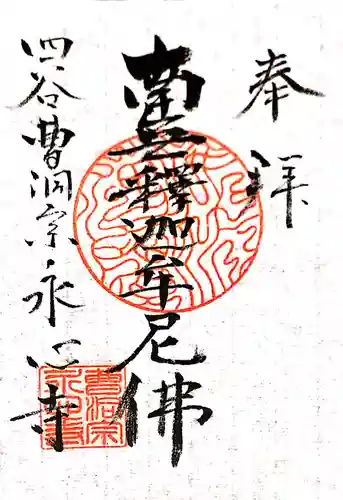 奉拝
南無釋迦牟尼佛
四谷曹洞宗永心寺